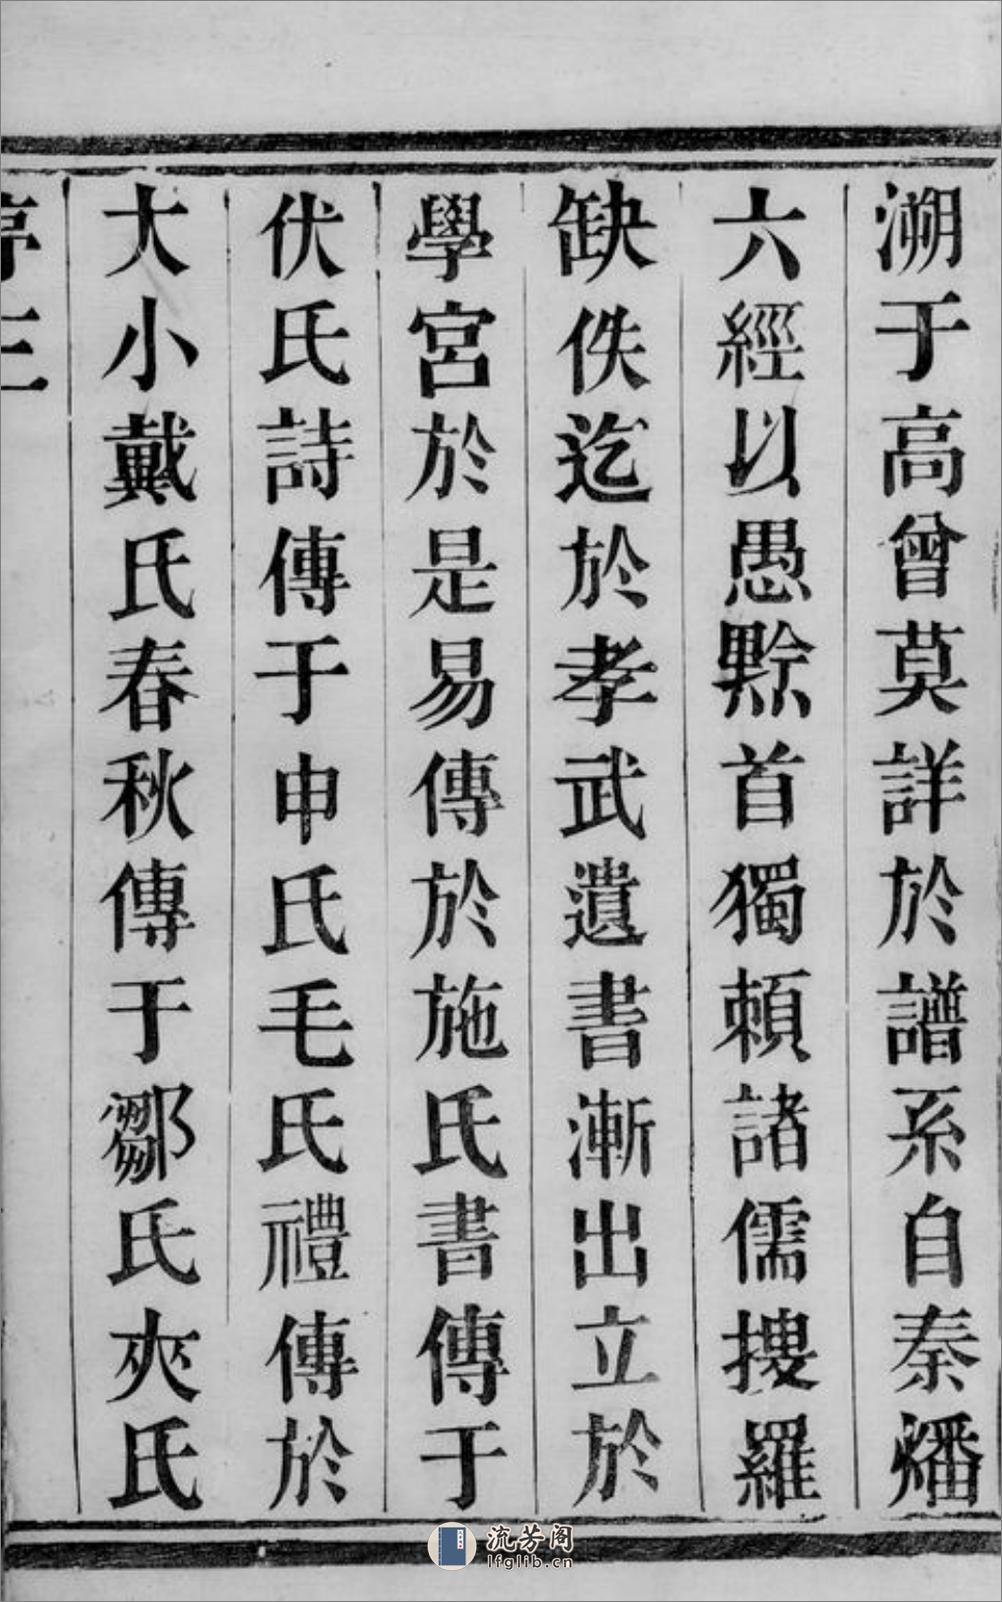 溯于高曾莫詳於譜系自秦燔
六經以愚黔首獨賴諸儒搜羅
缺佚迄於孝武遺書漸出立於
學宮於是易傳於施氏書傳于
伏氏詩傳于申氏毛氏禮傳於
大小戴氏春秋傳于鄒氏夾氏
序三
流芳阁
lfglib.cn